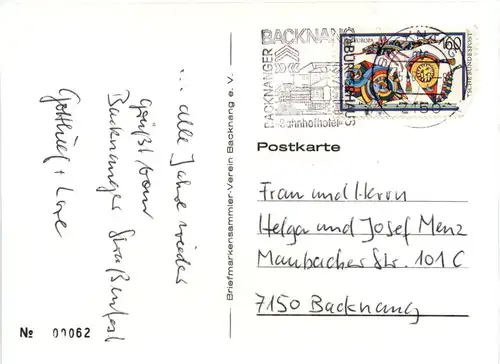 ... alle Jahre wieder
grüßt vom
Backnanger Straßenfest
Gottlieb + Lore
№ 00062
Briefmarkensammler-Verein Backnang e. V.
BACKNANG
BACKNANGER
BÜRGERHAUS
Bahnhofhotel
EUROPA
60
DEUTSCHE BUNDESPOST
Postkarte
Frau und Herrn
Helga und Josef Menz
Maubacher Str. 101 C
7150 Backnang